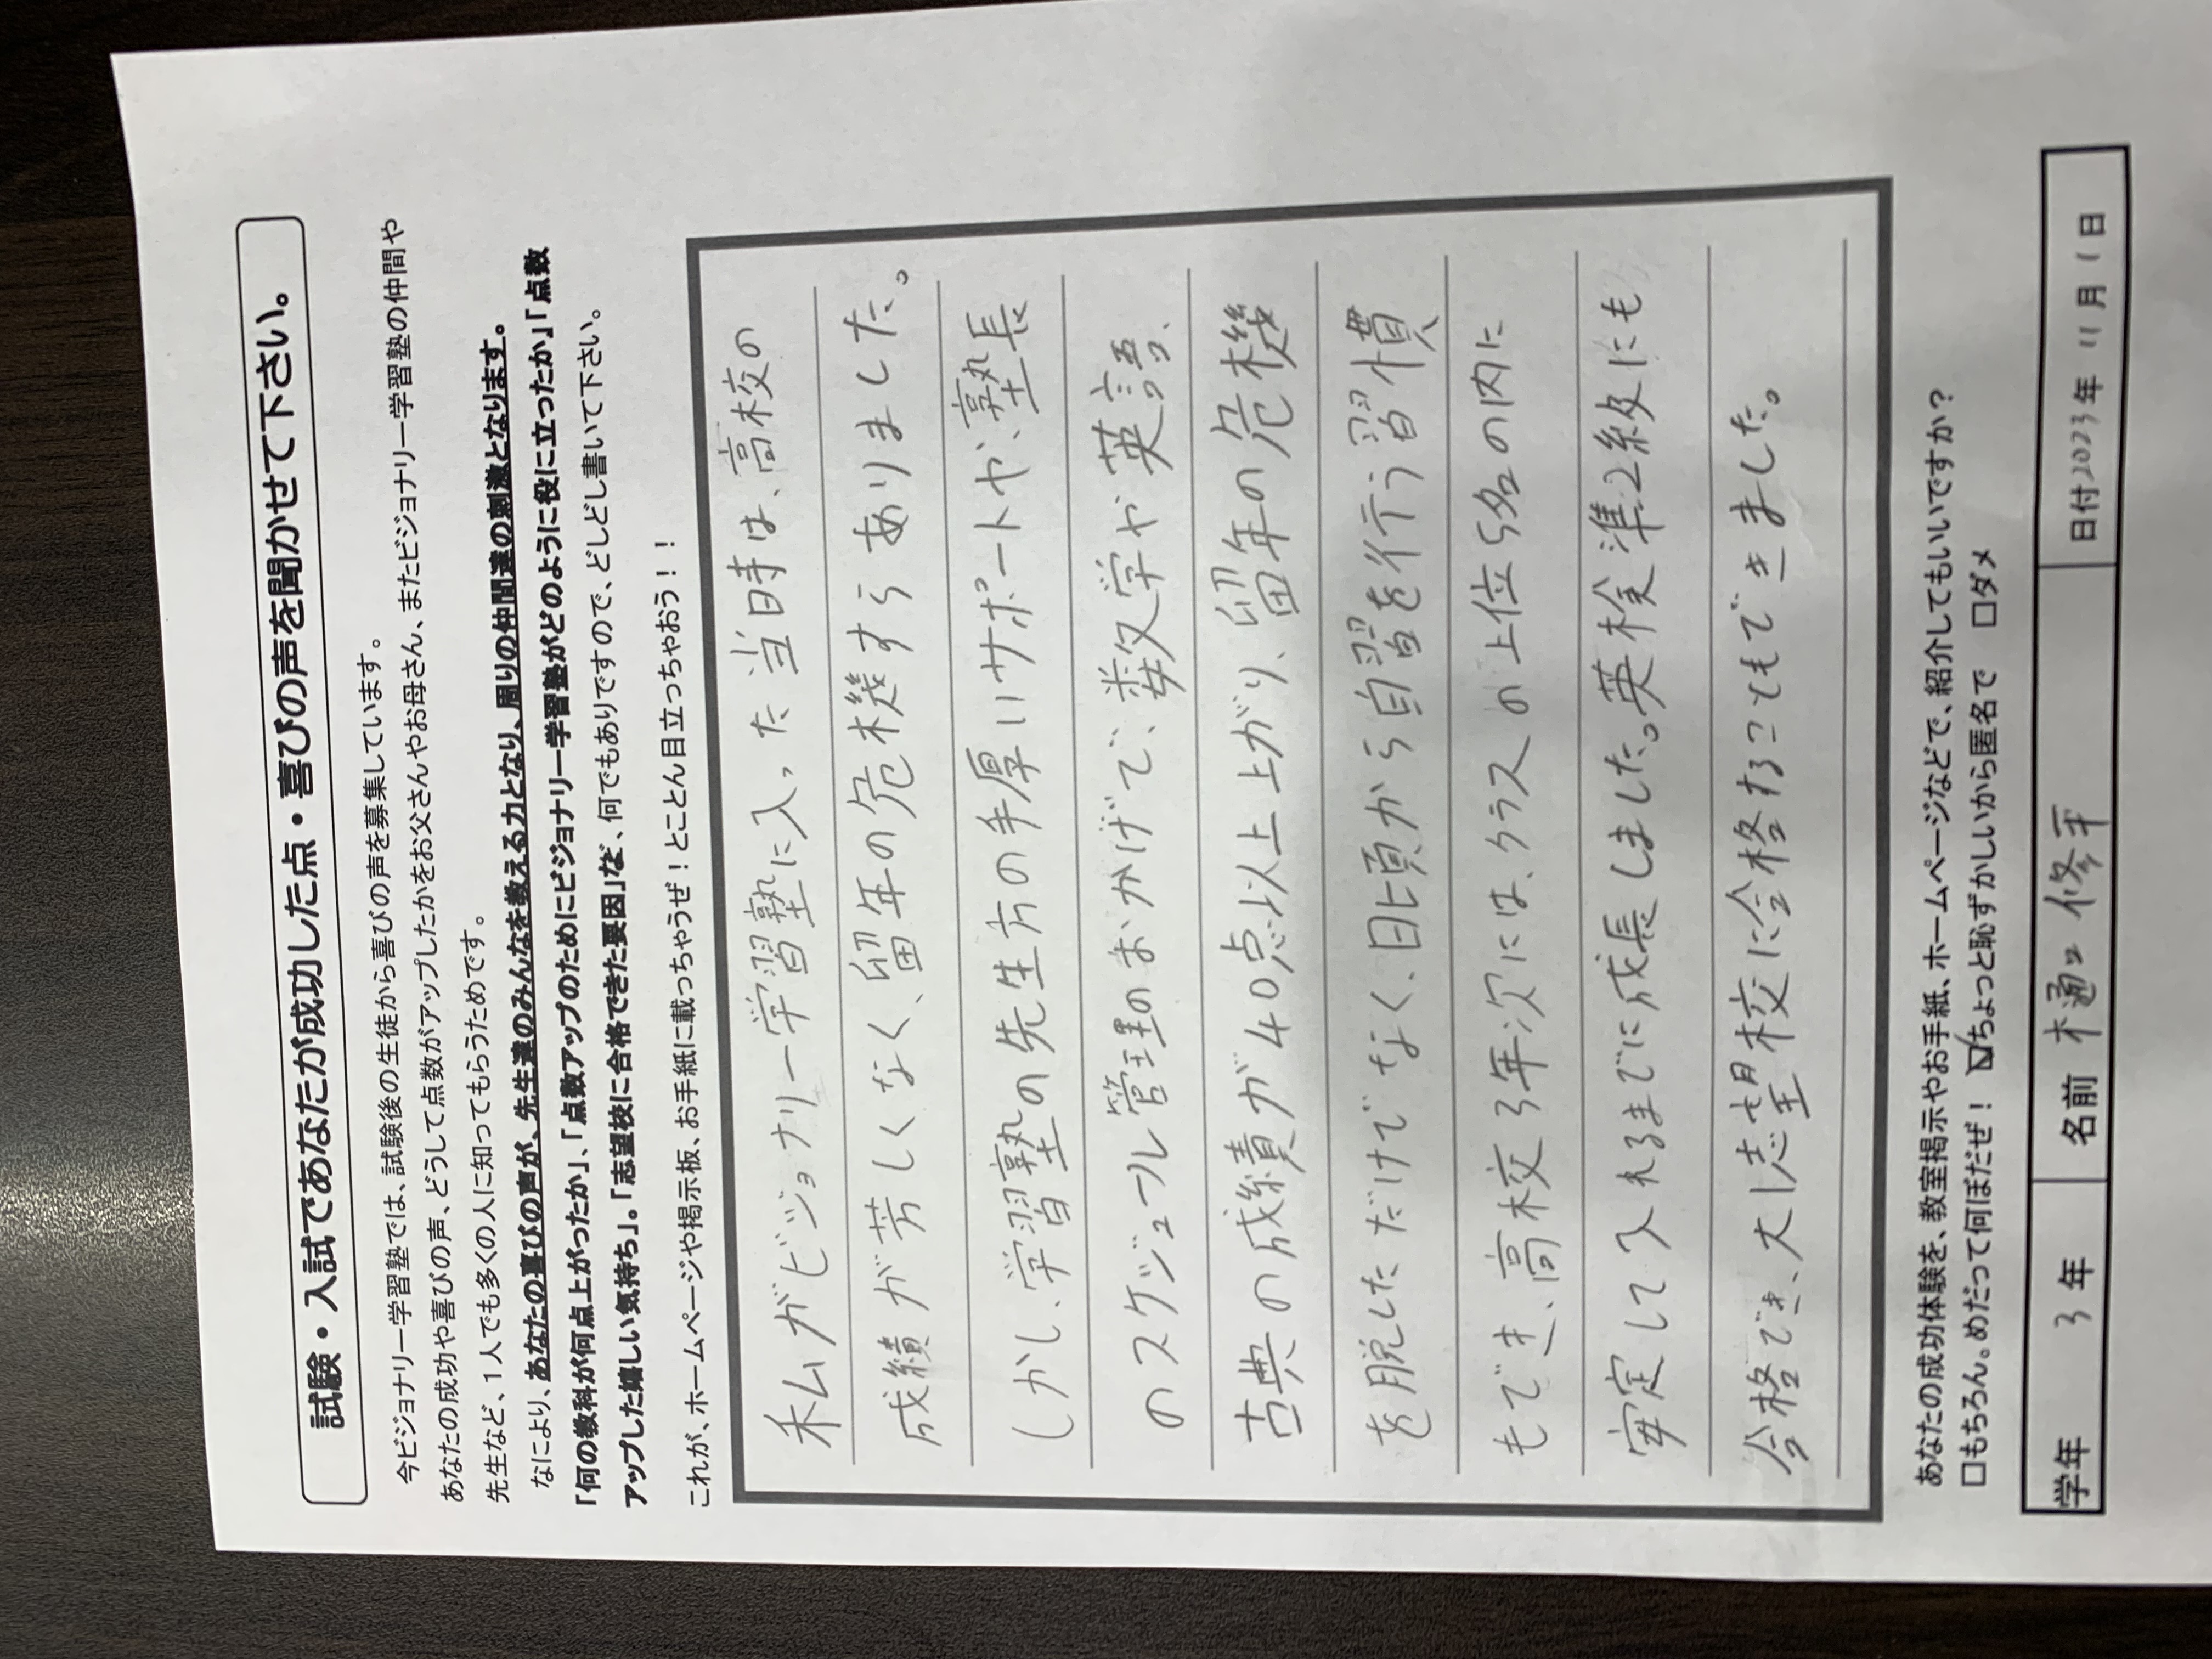 試験・入試であなたが成功した点・喜びの声を聞かせて下さい。
今ビジョナリー学習塾では、試験後の生徒から喜びの声を募集しています。
あなたの成功や喜びの声、どうして点数がアップしたかをお父さんやお母さん、またビジョナリー学習塾の仲間や
先生など、1人でも多くの人に知ってもらうためです。
なにより、あなたの喜びの声が、先生達のみんなを教える力となり、周りの仲間達の刺激となります。
「何の教科が何点上がったか」、「点数アップのためにビジョナリー学習塾がどのように役に立ったか」「点数
アップした嬉しい気持ち」。「志望校に合格できた要因」など、何でもありですので、どしどし書いて下さい。
これが、ホームページや掲示板、お手紙に載っちゃうぜ！とことん目立っちゃおう！！
私がビジョナリー学習塾に入った当時は、高校の
成績が芳しくなく、留年の危機すらありました。
しかし、学習塾の先生方の手厚いサポートや、塾長
のスケジュール管理のおかげで、数学や英語、
古典の成績が40点以上上がり、留年の危機
を脱しただけでなく、日頃から自習を行う習慣
もでき、高校3年次には、クラスの上位5名の内に
安定して入れるまでに成長しました。英検準2級にも
合格でき、大志望校に合格することもできました。
あなたの成功体験を、教室掲示やお手紙、ホームページなどで、紹介してもいいですか？
□もちろん。めだって何ぼだぜ！ ☑ちょっと恥ずかしいから匿名で □ダメ
学年 3年 名前 樋口修平 日付2023年11月1日